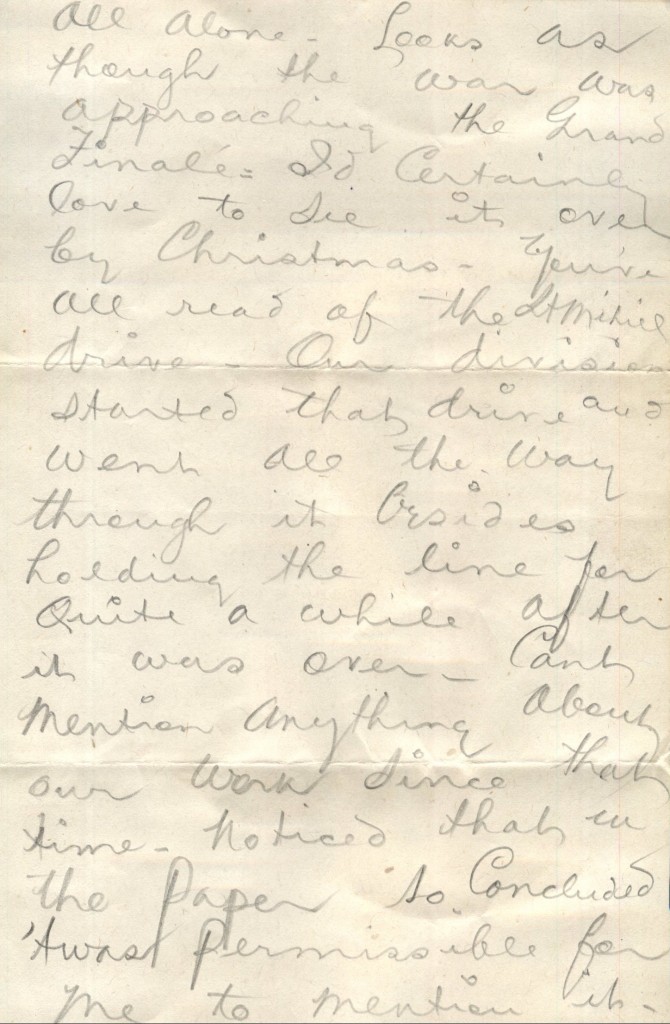 All Alone - Looks as
though the war was
approaching the Grand
Finale - I'd Certainly
love to see it over
by Christmas - You've
all read of the St Mihiel
drive - Our division
started that drive and
went all the way
through it besides
holding the line for
Quite a while after
it was over - Cant
Mention Anything About
our Work Since that
time - Noticed that in
the Paper so Concluded
'twas permissible for
me to mention it -